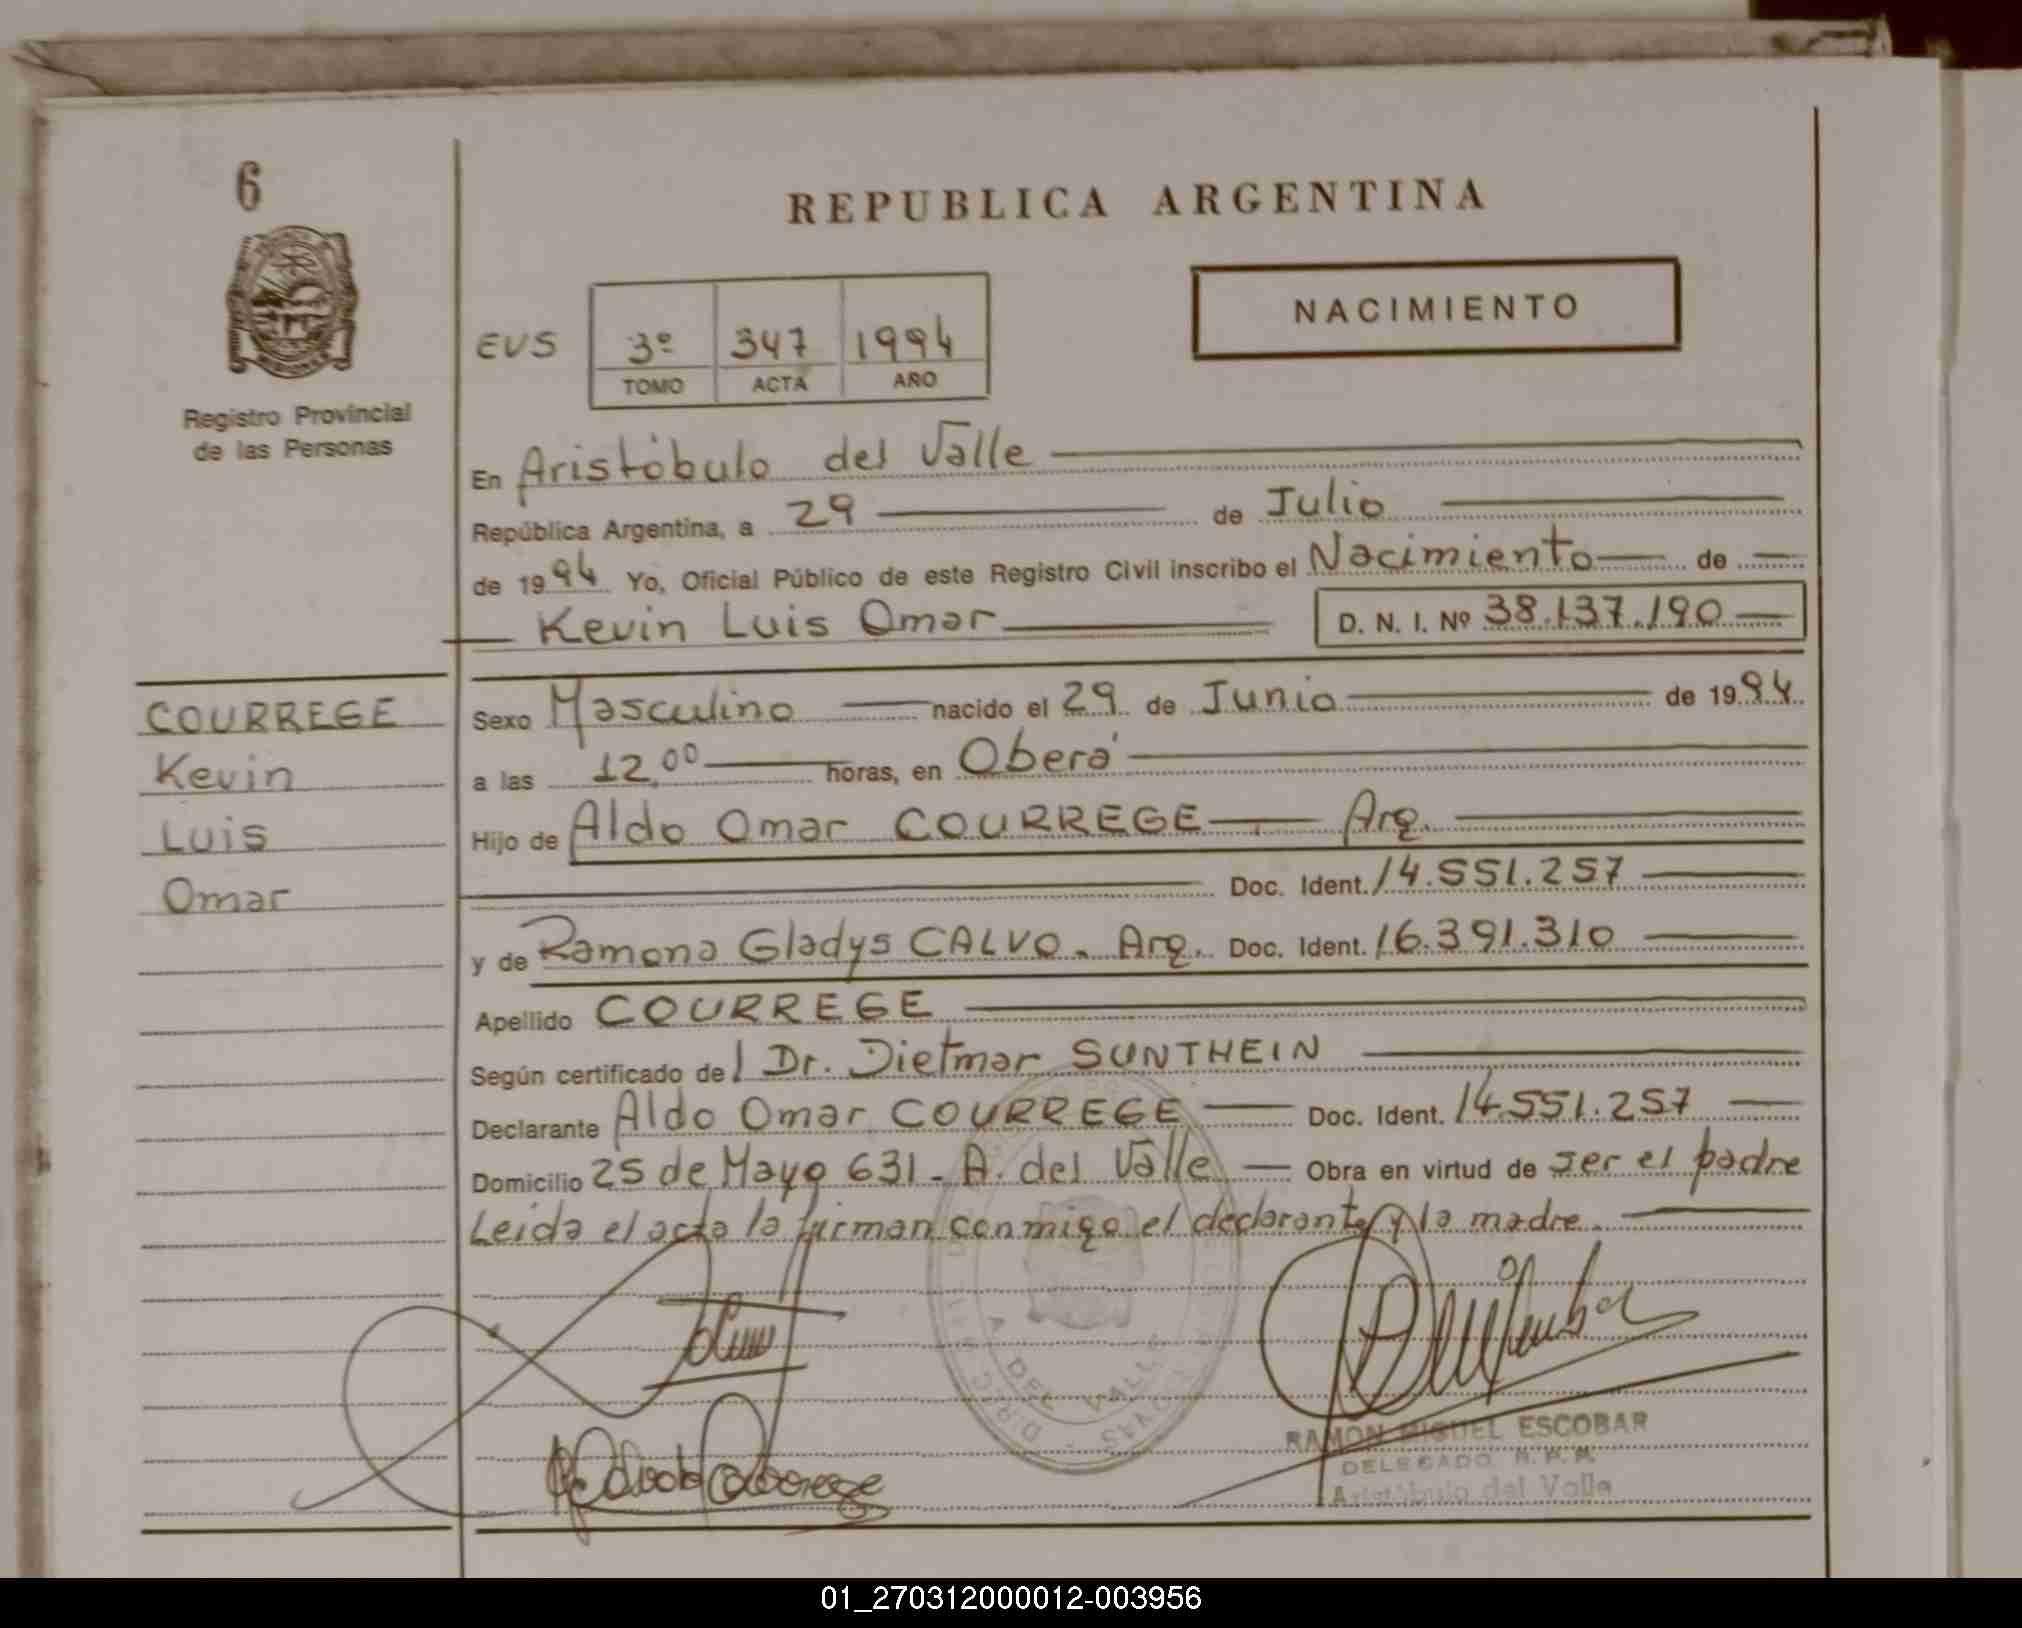 6
REPUBLICA ARGENTINA
NACIMIENTO
EVS
3º 347 1994
TOMO ACTA AÑO
Registro Provincial
de las Personas
En Aristóbulo del Valle
República Argentina, a 29 de Julio
de 1994 Yo, Oficial Público de este Registro Civil inscribo el Nacimiento de
Kevin Luis Omar D. N. I. Nº 38.137.190
COURREGE
Kevin
Luis
Omar
Sexo Masculino nacido el 29 de Junio de 1994
a las 12,00 horas, en Oberá
Hijo de Aldo Omar COURREGE Arg.
Doc. Ident. 14.551.257
y de Ramona Gladys CALVO. Arg. Doc. Ident. 16.391.310
Apellido COURREGE
Según certificado del Dr. Dietmar SUNTHEIN
Declarante Aldo Omar COURREGE Doc. Ident. 14.551.257
Domicilio 25 de Mayo 631 - A. del Valle Obra en virtud de ser el padre
Leida el acta la firman conmigo el declarante y la madre.
A. DEL VALLE
RAMON MIGUEL ESCOBAR
DELEGADO R. P. P.
Aristóbulo del Valle
01_270312000012-003956